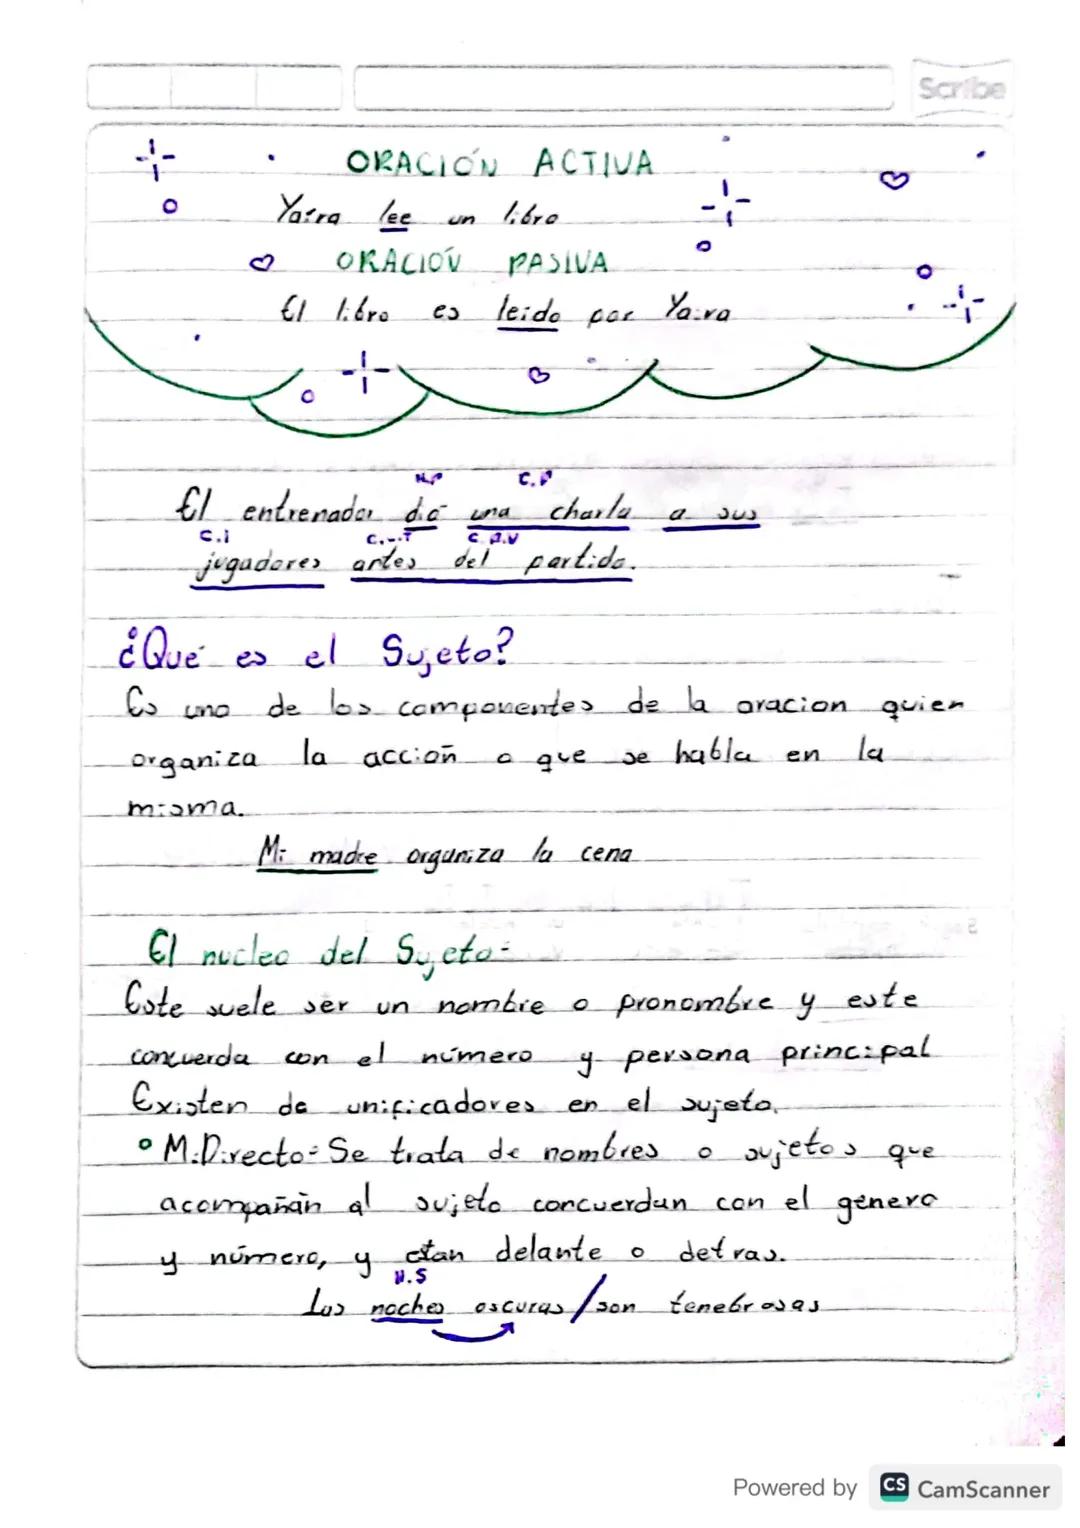 Scribe
ORACIÓN ACTIVA
Yaira lee un libro
ORACIÓN PASIVA
El libro es leido por Yaira
N.P C.P
El entrenador dió una charla a sus
C.i C.C.T C.P.V
jugadores antes del partido.
¿Qué es el Sujeto?
Es uno de los componentes de la oracion quien
organiza la acción o que se habla en la
misma.
Mi madre organiza la cena
El nucleo del Sujeto:
Este suele ser un nombre o pronombre y este
concuerda con el número y persona principal
Existen de unificadores en el sujeto.
M.Directo: Se trata de nombres o sujetos que
acompañan al sujeto concuerdan con el genero
y número, y etan delante o detras.
N.S
Las noches oscuras / son tenebrosas
Powered by CS CamScanner